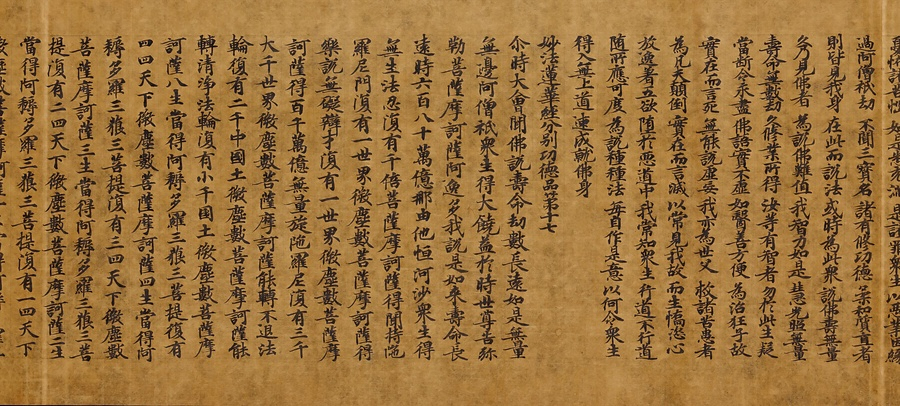 怖諸苦惱 如是悉充滿 是諸罪衆生 以惡業因緣
過阿僧祇劫 不聞三寶名 諸有修功德 柔和質直者
則皆見我身 在此而說法 或時為此衆 說佛壽無量
久乃見佛者 為說佛難值 我智力如是 慧光照無量
壽命無數劫 久修業所得 汝等有智者 勿於此生疑
當斷令永盡 佛語實不虛 如醫善方便 為治狂子故
實在而言死 無能說虛妄 我亦為世父 救諸苦患者
為凡夫顛倒 實在而言滅 以常見我故 而生憍恣心
放逸著五欲 墮於惡道中 我常知衆生 行道不行道
隨所應可度 為說種種法 每自作是意 以何令衆生
得入無上道 速成就佛身
妙法蓮華經分別功德品第十七
尒時大會聞佛說壽命劫數長遠如是無量
無邊阿僧祇衆生得大饒益於時世尊告弥
勒菩薩摩訶薩阿逸多我說是如來壽命長
遠時六百八十萬億那由他恒河沙衆生得
無生法忍復有千倍菩薩摩訶薩得聞持陁
羅尼門復有一世界微塵數菩薩摩訶薩得
樂說無礙辯才復有一世界微塵數菩薩摩
訶薩得百千萬億無量旋陁羅尼復有三千
大千世界微塵數菩薩摩訶薩能轉不退法
輪復有二千中國土微塵數菩薩摩訶薩能
轉清淨法輪復有小千国土微塵數菩薩摩
訶薩八生當得阿耨多羅三藐三菩提復有
四四天下微塵數菩薩摩訶薩四生當得阿
耨多羅三藐三菩提復有三四天下微塵數
菩薩摩訶薩三生當得阿耨多羅三藐三菩
提復有二四天下微塵數菩薩摩訶薩二生
當得阿耨多羅三藐三菩提復有一四天下